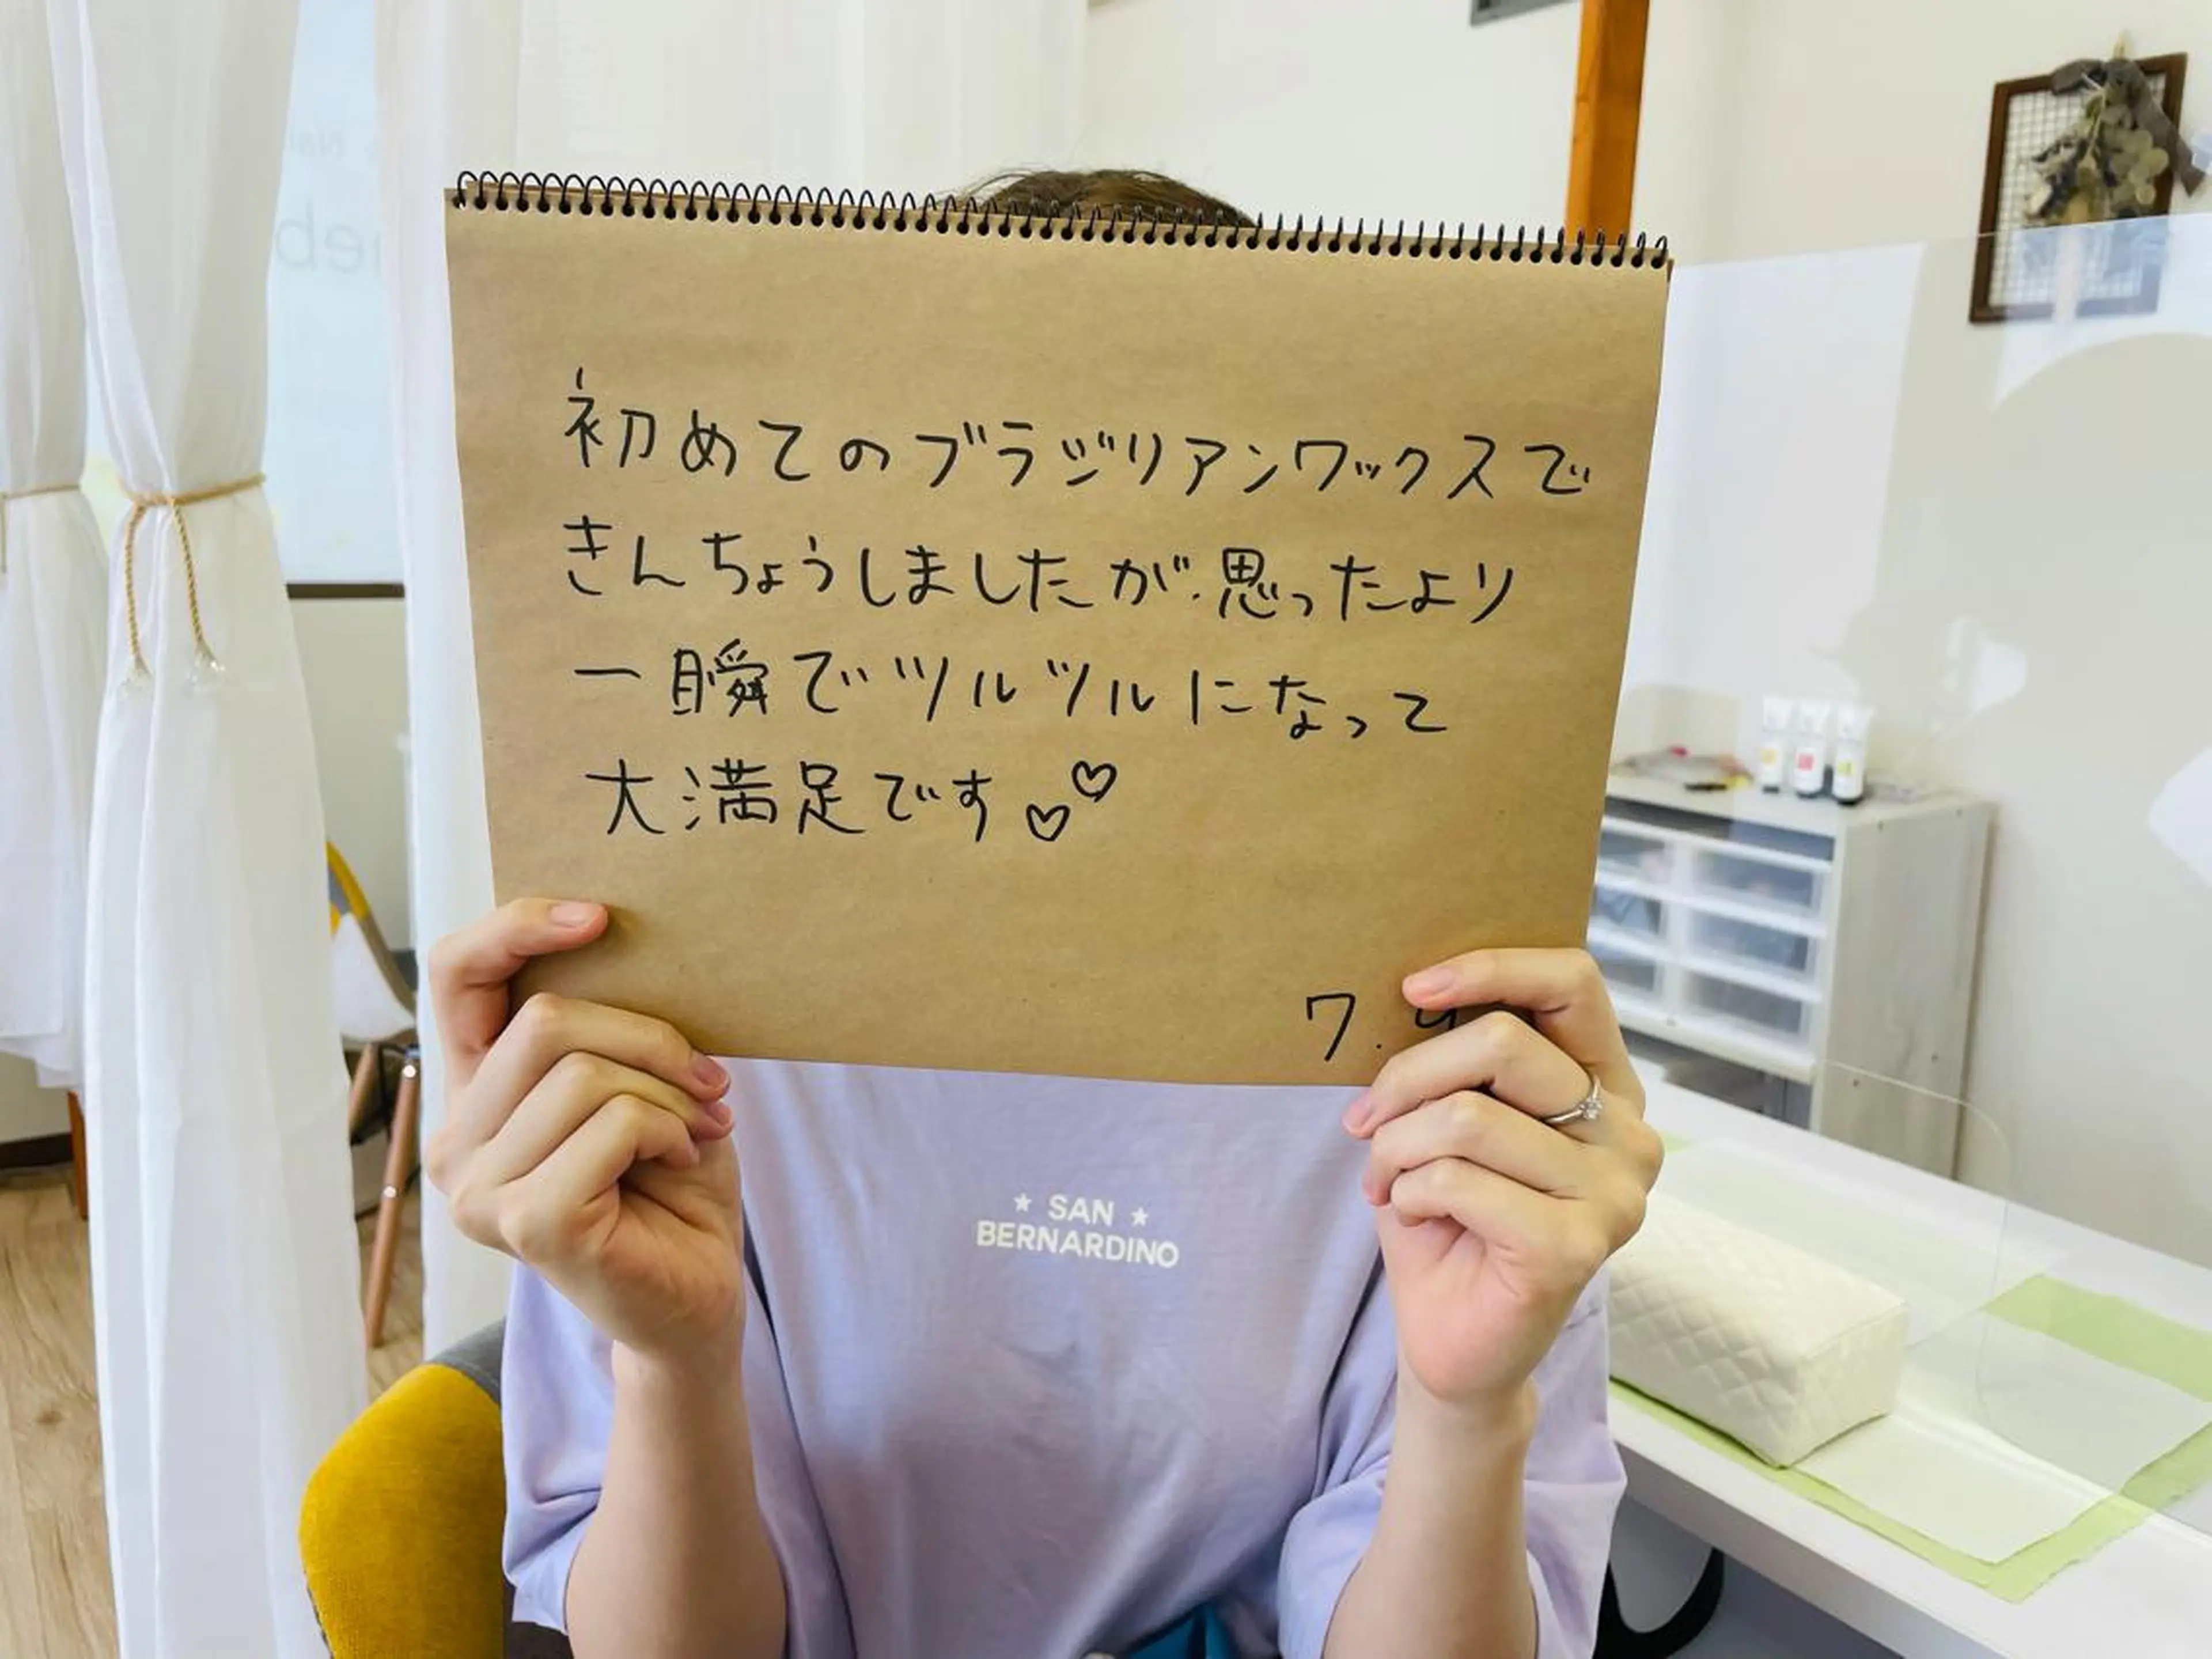 初めてのブラジリアンワックスで
きんちょうしましたが、思ったより
一瞬でツルツルになって
大満足です♡♡
7.
★ SAN ★
BERNARDINO